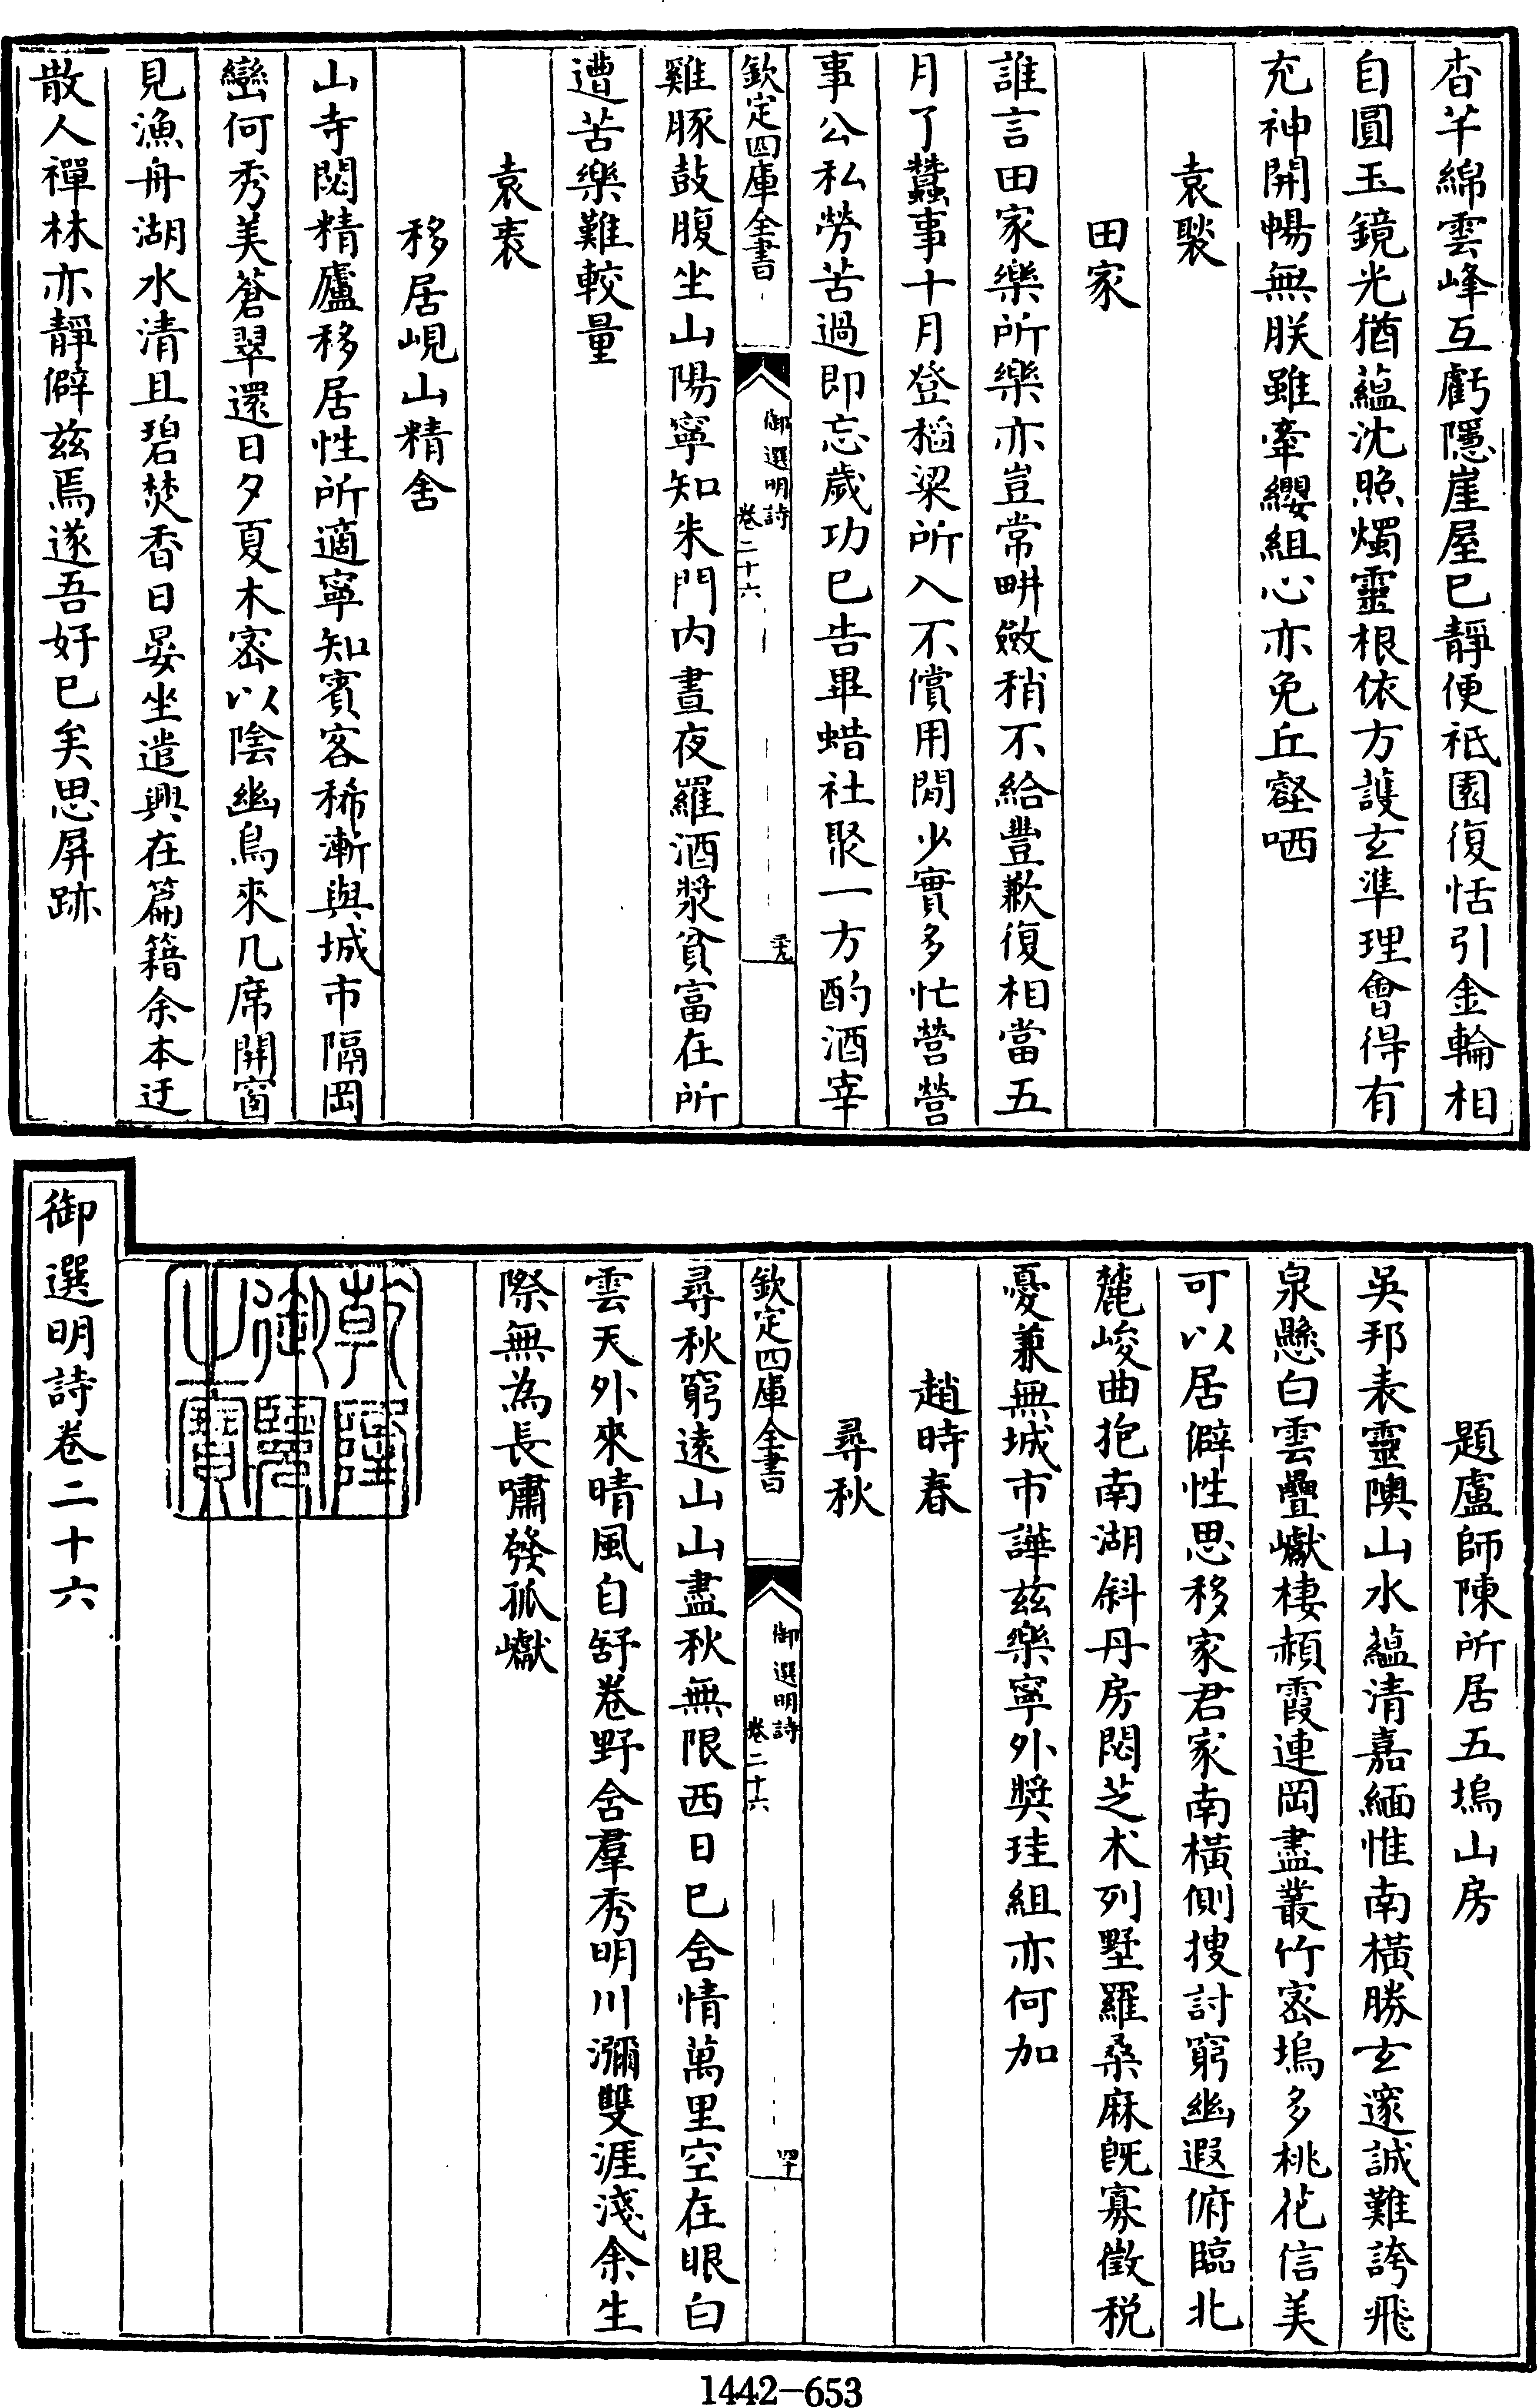 杳芊綿雲峰互虧隱崖屋已靜便祗園復恬引金輪相
自圓玉鏡光猶藴沈照燭靈根依方護玄準理會得有
充神開暢無朕雖牽纓組心亦免丘壑哂
袁褧
田家
誰言田家樂所樂亦豈常畊斂稍不給豐歉復相當五
月了蠶事十月登稻粱所入不償用閒少實多忙營營
事公私勞苦過即忘歲功已告畢蜡社聚一方酌酒宰
欽定四庫全書
御選明詩
卷二十六
三九
雞豚鼓腹坐山陽寧知朱門内晝夜羅酒漿貧富在所
遭苦樂難較量
袁袠
移居峴山精舍
山寺閟精廬移居性所適寧知賓客稀漸與城市隔岡
巒何秀美蒼翠還日夕夏木宻以隂幽鳥來几席開窗
見漁舟湖水清且碧焚香日晏坐遣興在篇籍余本迂
散人禪林亦靜僻兹焉遂吾好已矣思屏跡
題盧師陳所居五塢山房
吳邦表靈隩山水藴清嘉緬惟南橫勝玄邃誠難誇飛
泉懸白雲疊巘棲赬霞連岡盡叢竹宻塢多桃花信美
可以居僻性思移家君家南橫側搜討窮幽遐俯臨北
麓峻曲抱南湖斜丹房閟芝朮列墅羅桑麻既寡徵税
憂兼無城市譁兹樂寧外奬珪組亦何加
趙時春
尋秋
欽定四庫全書
御選明詩
卷二十六
四十
尋秋窮遠山山盡秋無限西日已舍情萬里空在眼白
雲天外來晴風自舒卷野舍羣秀明川瀰雙涯淺余生
際無為長嘯發孤巘
乾隆御覽之寶
御選明詩卷二十六
1442-653